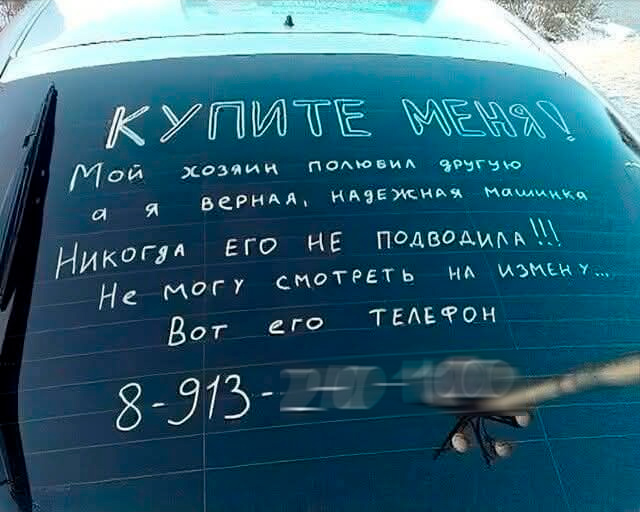 КУПИТЕ МЕНЯ!
Мой хозяин полюбил другую
а я верная, надежная машинка
Никогда его не подводила!!!
Не могу смотреть на измену...
Вот его телефон
8-913-